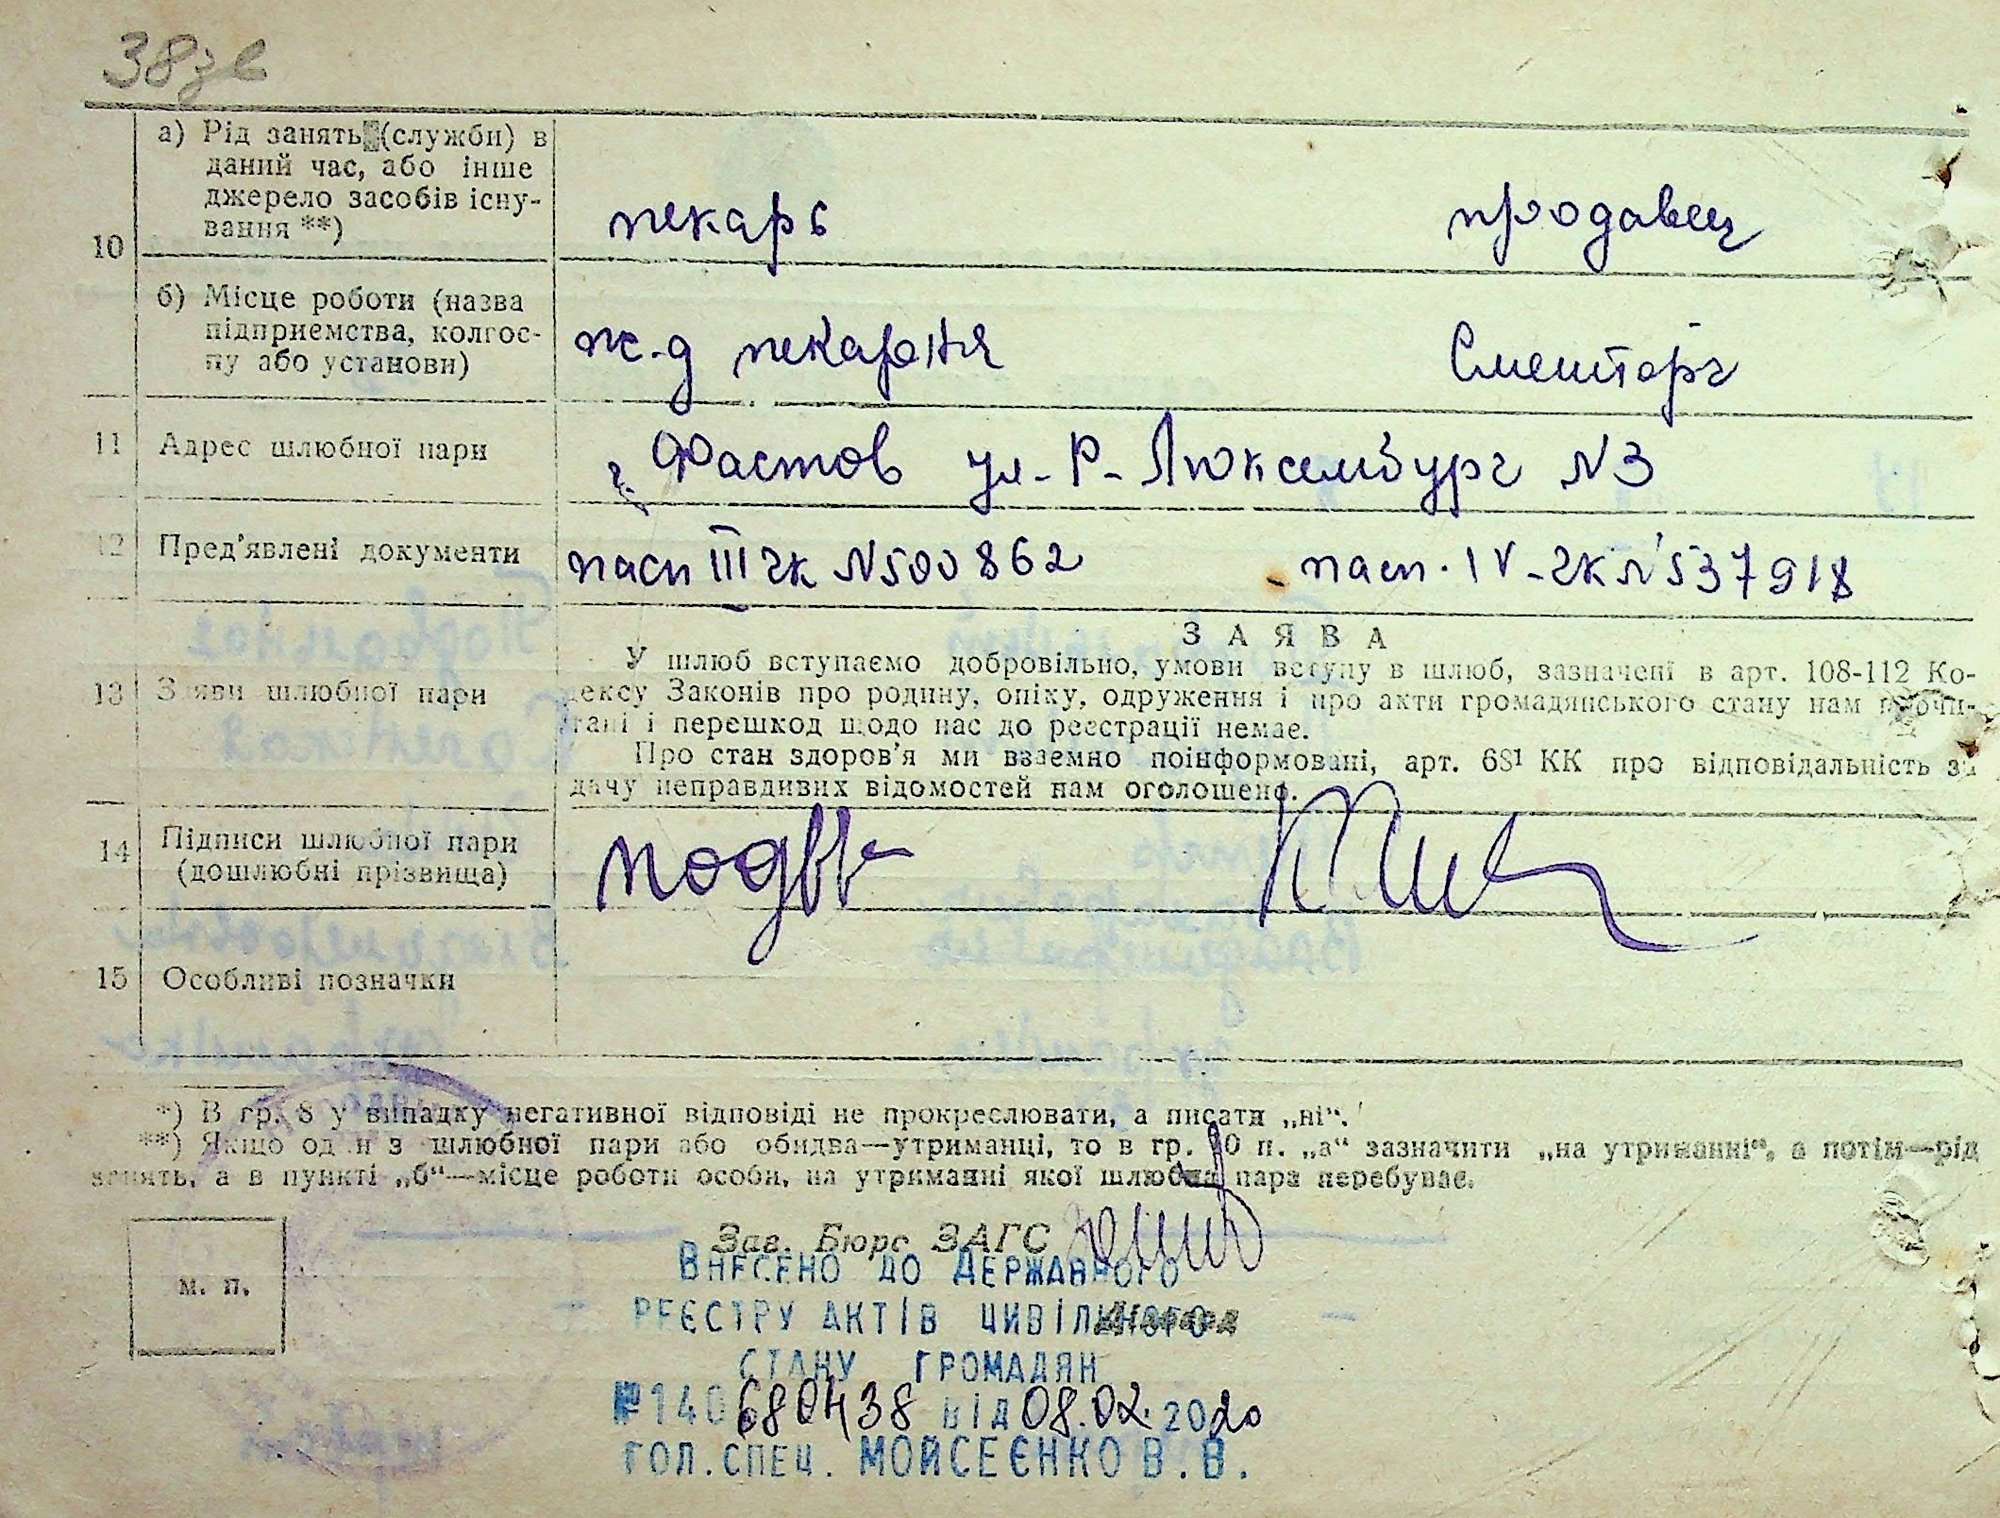 38зв
10
а) Рід занять (служби) в
даний час, або інше
джерело засобів існу-
вання **)
пекарь продавец
б) Місце роботи (назва
підприємства, колгос-
пу або установи)
ж.д пекарня Смешторг
11 Адрес шлюбної пари г. Фастов ул. Р. Люксембург №3
12 Пред'явлені документи пасп III ЧК №500862 пасп. IV-ЧК №537918
13 Заяви шлюбної пари
ЗАЯВА
У шлюб вступаємо добровільно, умови вступу в шлюб, зазначені в арт. 108-112 Ко-
дексу Законів про родину, опіку, одруження і про акти громадянського стану нам прочи-
тані і перешкод щодо нас до реєстрації немає.
Про стан здоров'я ми взаємно поінформовані, арт. 68¹ КК про відповідальність за
дачу неправдивих відомостей нам оголошено.
14 Підписи шлюбної пари
(дошлюбні прізвища)
15 Особливі позначки
*) В гр. 8 у випадку негативної відповіді не прокреслювати, а писати „ні“.
**) Якщо один з шлюбної пари або обидва—утриманці, то в гр. 10 п. „а“ зазначити „на утриманні“, а потім—рід
занять, а в пункті „б“—місце роботи особи, на утриманні якої шлюбна пара перебуває.
м. п.
Зав. Бюро ЗАГС
ВНЕСЕНО ДО ДЕРЖАВНОГО
РЕЄСТРУ АКТІВ ЦИВІЛЬНОГО
СТАНУ ГРОМАДЯН
№140680438 від 08.02.2020
ГОЛ.СПЕЦ. МОЙСЕЄНКО В.В.